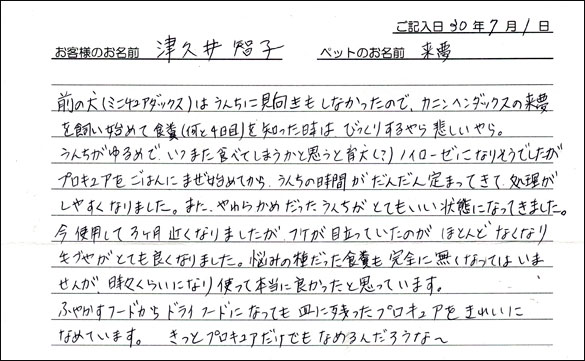 ご記入日 30年7月1日
お客様のお名前 津久井智子 ペットのお名前 来夢
前の犬(ミニチュアダックス)はうんちに見向きもしなかったので、カニンヘンダックスの来夢
を飼い始めて食糞(何と4日目)を知った時は びっくりするやら悲しいやら。
うんちがゆるめで、いつまた食べてしまうかと思うと育犬(?)ノイローゼになりそうでしたが
プロキュアをごはんにまぜ始めてから、うんちの時間がだんだん定まってきて、処理が
しやすくなりました。また、やわらかめだったうんちがとてもいい状態になってきました。
今使用して3ヶ月近くなりましたが、フケが目立っていたのがほとんどなくなり
キヅやがとても良くなりました。悩みの種だった食糞も完全に無くなってはいま
せんが、時々くらいになり使って本当に良かったと思っています。
ふやかすフードからドライフードになっても皿に残ったプロキュアをきれいに
なめています。 きっとプロキュアだけでもなめるんだろうな〜